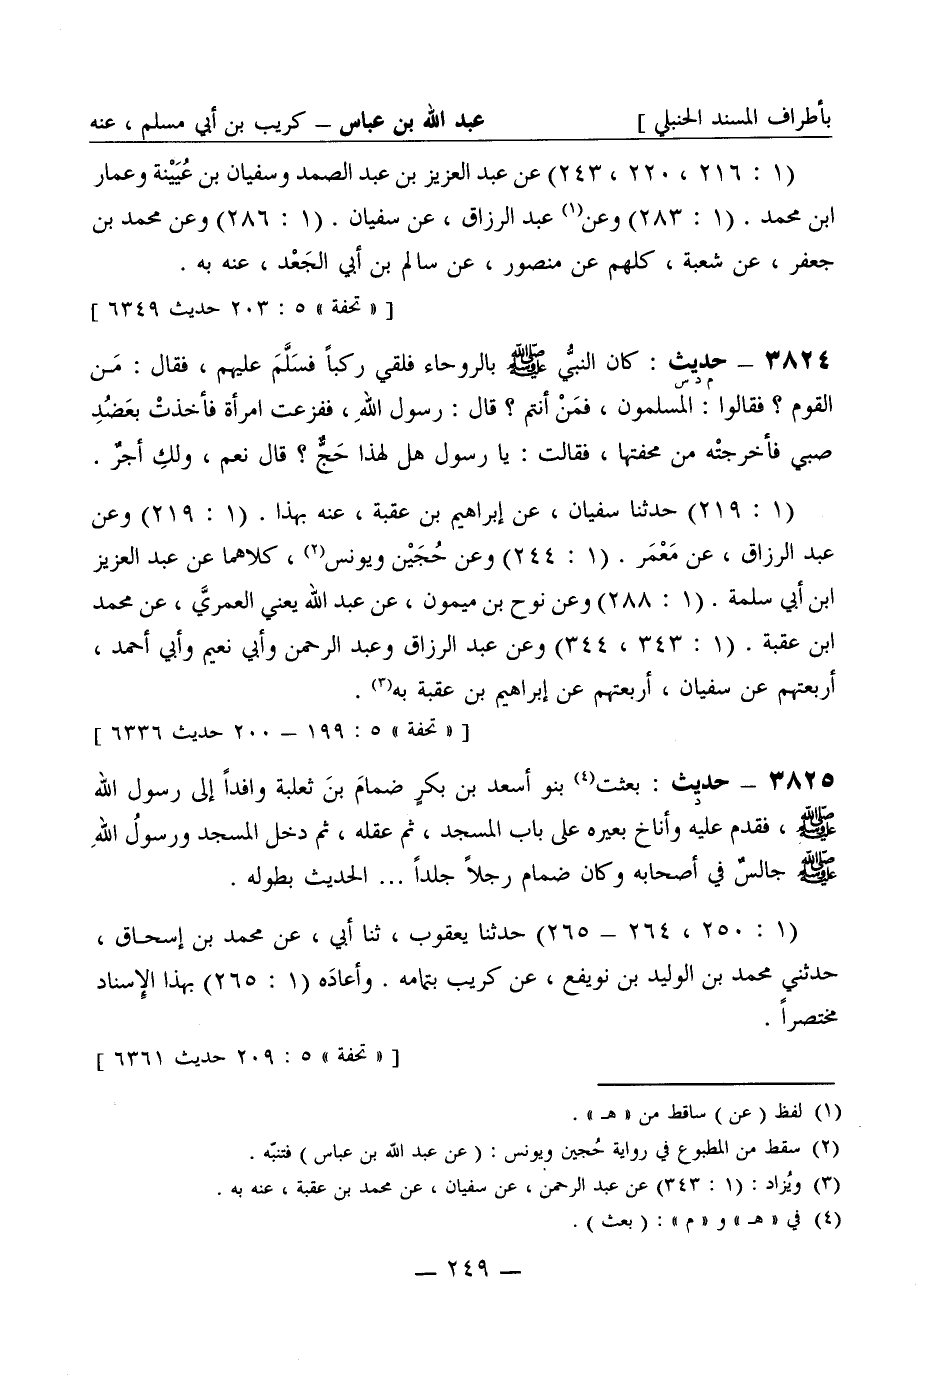 بأطراف المسند الحنبلي ] عبد الله بن عباس – كريب بن أبي مسلم ، عنه
(١ : ٢١٦ ، ٢٢٠ ، ٢٤٣) عن عبد العزيز بن عبد الصمد وسفيان بن عُيَيْنة وعمار
ابن محمد . (١ : ٢٨٣) وعن(١) عبد الرزاق ، عن سفيان . (١ : ٢٨٦) وعن محمد بن
جعفر ، عن شعبة ، كلهم عن منصور ، عن سالم بن أبي الجَعْد ، عنه به .
[ « تحفة » ٥ : ٢٠٣ حديث ٦٣٤٩ ]
٣٨٢٤ – حديث : كان النبيُّ ﷺ بالروحاء فلقي ركباً فسَلَّمَ عليهم ، فقال : مَـن
م د س
القوم ؟ فقالوا : المسلمون ، فمَنْ أنتم ؟ قال : رسول اللهِ ، ففزعت امرأة فأخذتْ بعَضُدِ
صبي فأخرجتْه من محفتها ، فقالت : يا رسول هل لهذا حَجٌّ ؟ قال نعم ، ولكِ أجرٌ .
(١ : ٢١٩) حدثنا سفيان ، عن إبراهيم بن عقبة ، عنه بهذا . (١ : ٢١٩) وعن
عبد الرزاق ، عن مَعْمَر . (١ : ٢٤٤) وعن حُجَيْن ويونس(٢) ، كلاهما عن عبد العزيز
ابن أبي سلمة . (١ : ٢٨٨) وعن نوح بن ميمون ، عن عبد الله يعني العمريَّ ، عن محمد
ابن عقبة . (١ : ٣٤٣ ، ٣٤٤) وعن عبد الرزاق وعبد الرحمن وأبي نعيم وأبي أحمد ،
أربعتهم عن سفيان ، أربعتهم عن إبراهيم بن عقبة به(٣) .
[ « تحفة » ٥ : ١٩٩ – ٢٠٠ حديث ٦٣٣٦ ]
٣٨٢٥ – حديث : بعثت(٤) بنو أسعد بن بكرٍ ضمامَ بنَ ثعلبة وافداً إلى رسول الله
د
ﷺ ، فقدم عليه وأناخ بعيره على باب المسجد ، ثم عقله ، ثم دخل المسجد ورسولُ اللهِ
ﷺ جالسٌ في أصحابه وكان ضمام رجلاً جلداً ... الحديث بطوله .
(١ : ٢٥٠ ، ٢٦٤ – ٢٦٥) حدثنا يعقوب ، ثنا أبي ، عن محمد بن إسحاق ،
حدثني محمد بن الوليد بن نويفع ، عن كريب بتمامه . وأعادَه (١ : ٢٦٥) بهذا الإِسناد
مختصراً .
[ « تحفة » ٥ : ٢٠٩ حديث ٦٣٦١ ]
(١) لفظ ( عن ) ساقط من « هـ » .
(٢) سقط من المطبوع في رواية حُجين ويونس : ( عن عبد الله بن عباس ) فتنبّه .
(٣) ويُزاد : (١ : ٣٤٣) عن عبد الرحمن ، عن سفيان ، عن محمد بن عقبة ، عنه به .
(٤) في « هـ » و « م » : ( بعث ) .
– ٢٤٩ –